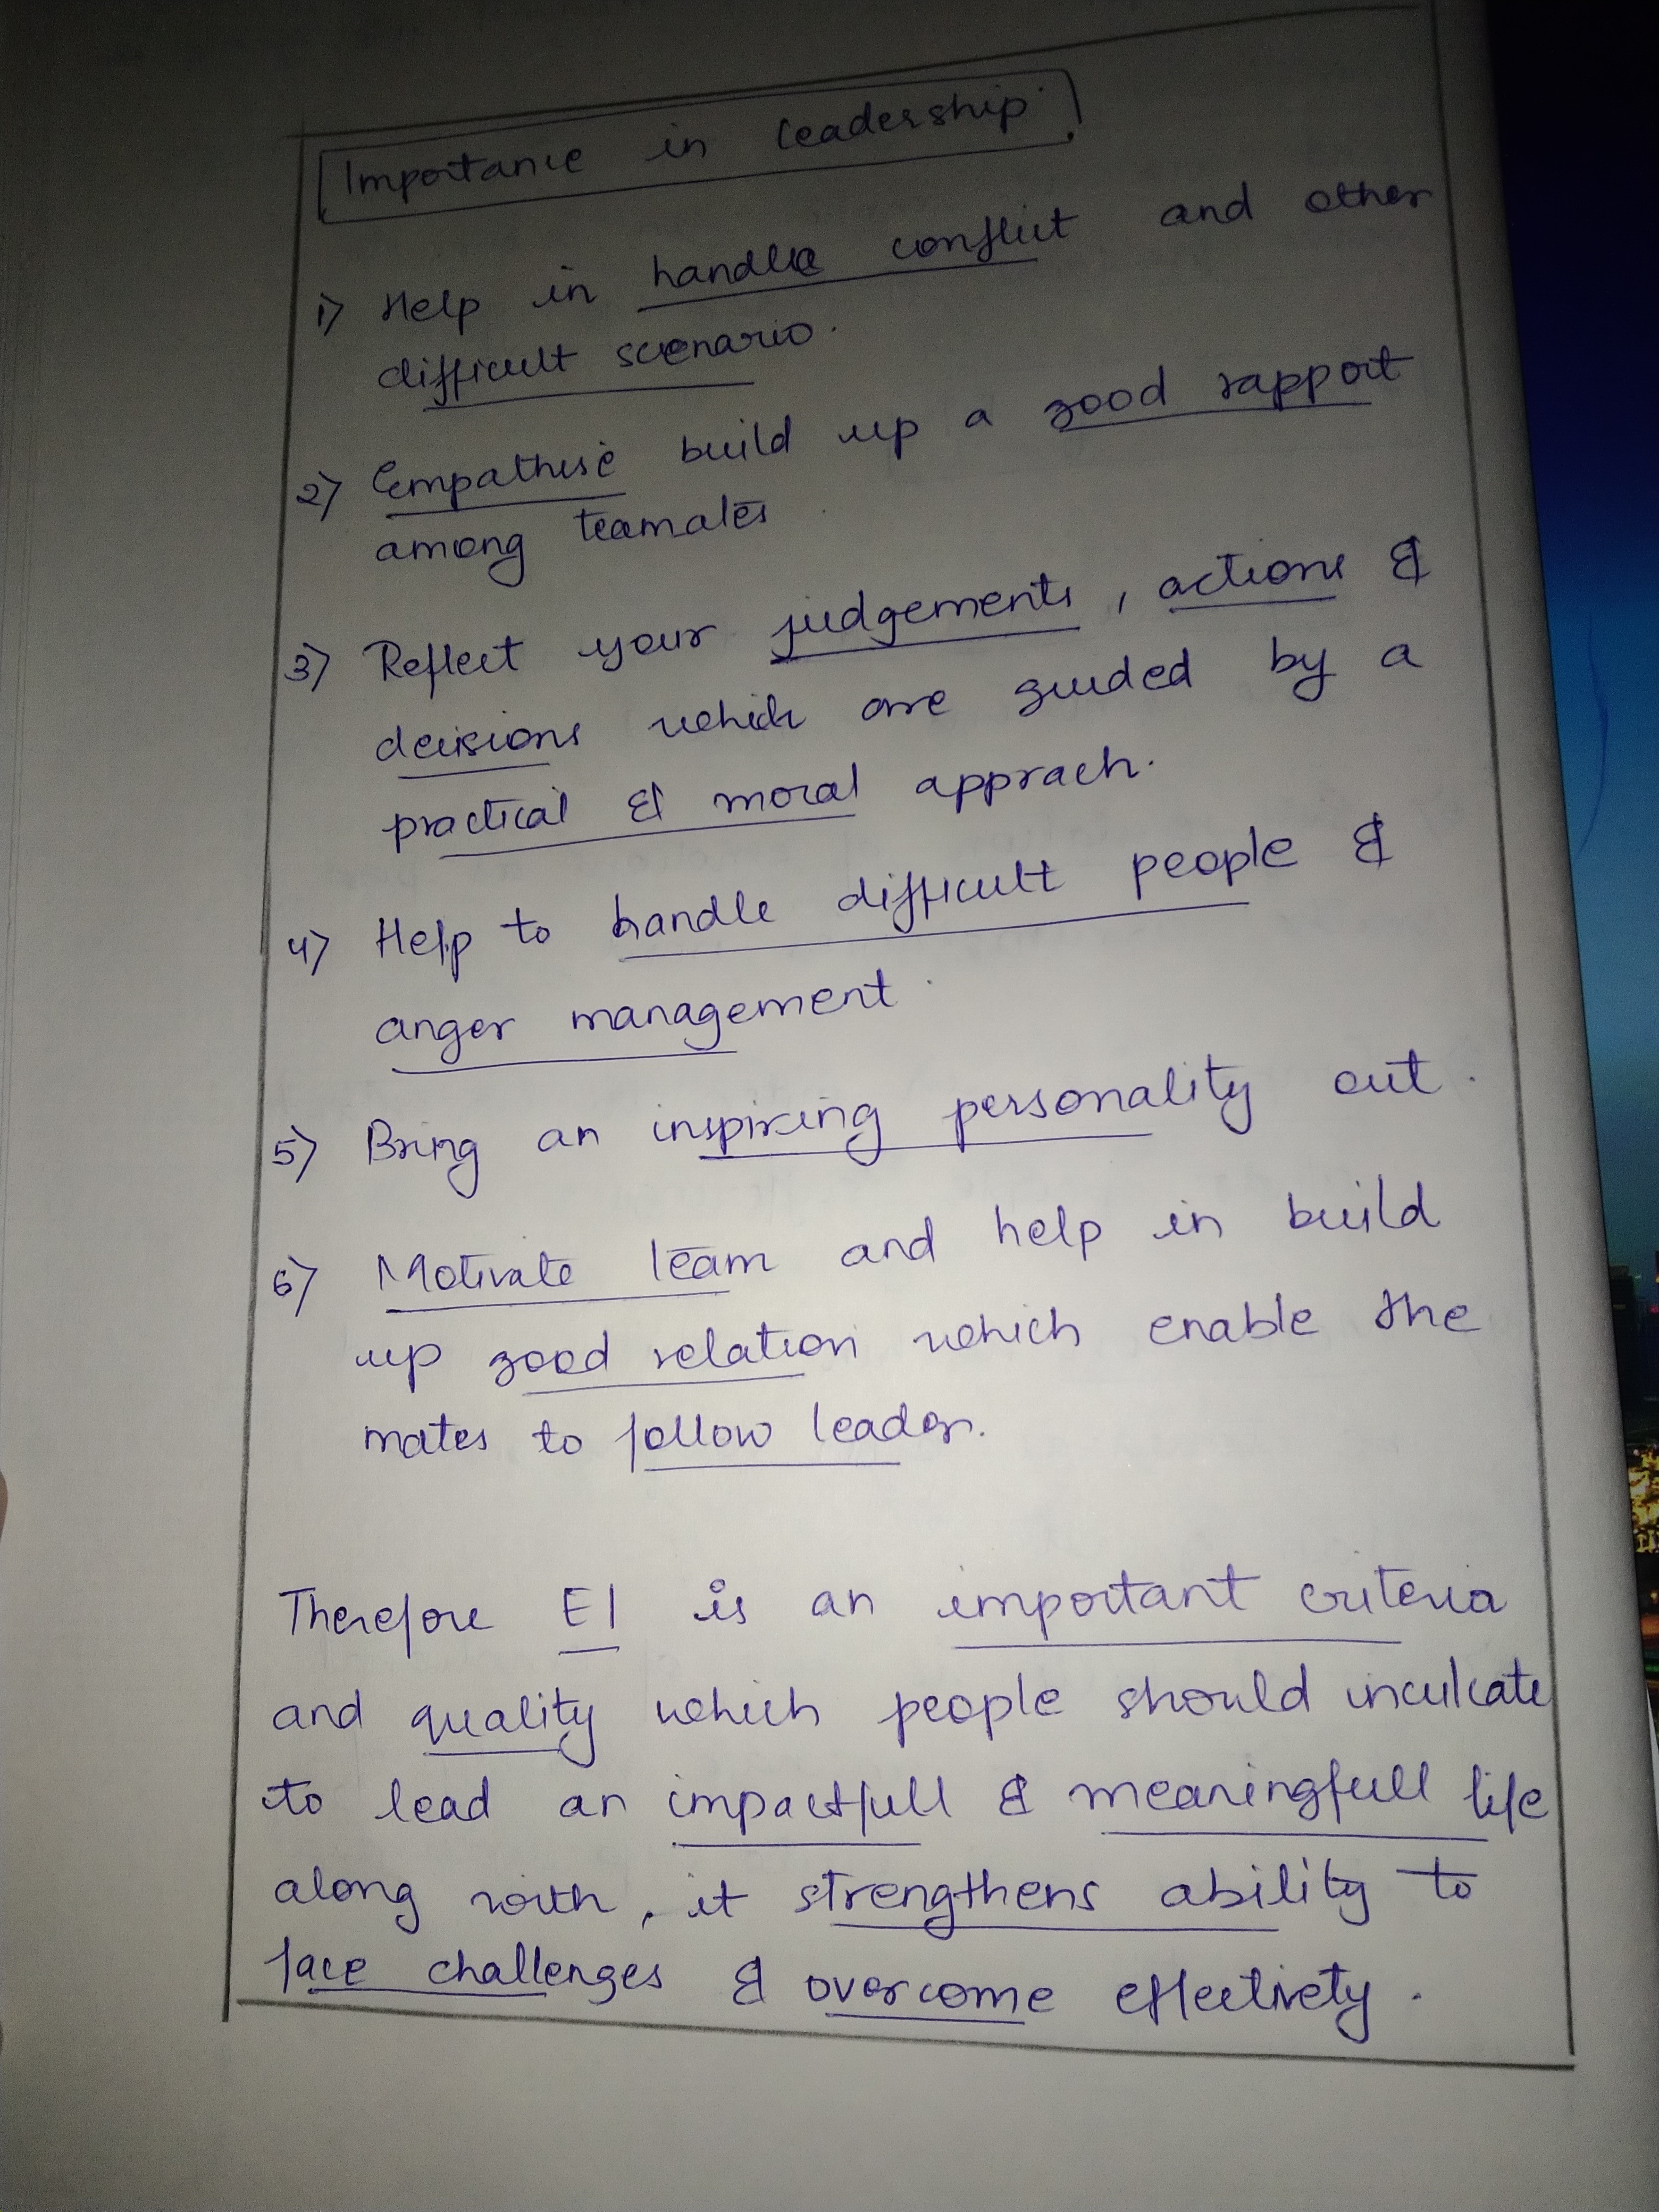 Importance in leadership.
1) Help in handle conflict and other
difficult scenario.
2) Empathise build up a good rapport
among teamates
3) Reflect your judgements, actions &
decisions which are guided by a
practical & moral apprach.
4) Help to handle difficult people &
anger management.
5) Bring an inspiring personality out.
6) Motivate team and help in build
up good relation which enable the
mates to follow leader.
Therefore EI is an important criteria
and quality which people should inculcate
to lead an impactfull & meaningfull life
along with, it strengthens ability to
face challenges & overcome effectively.